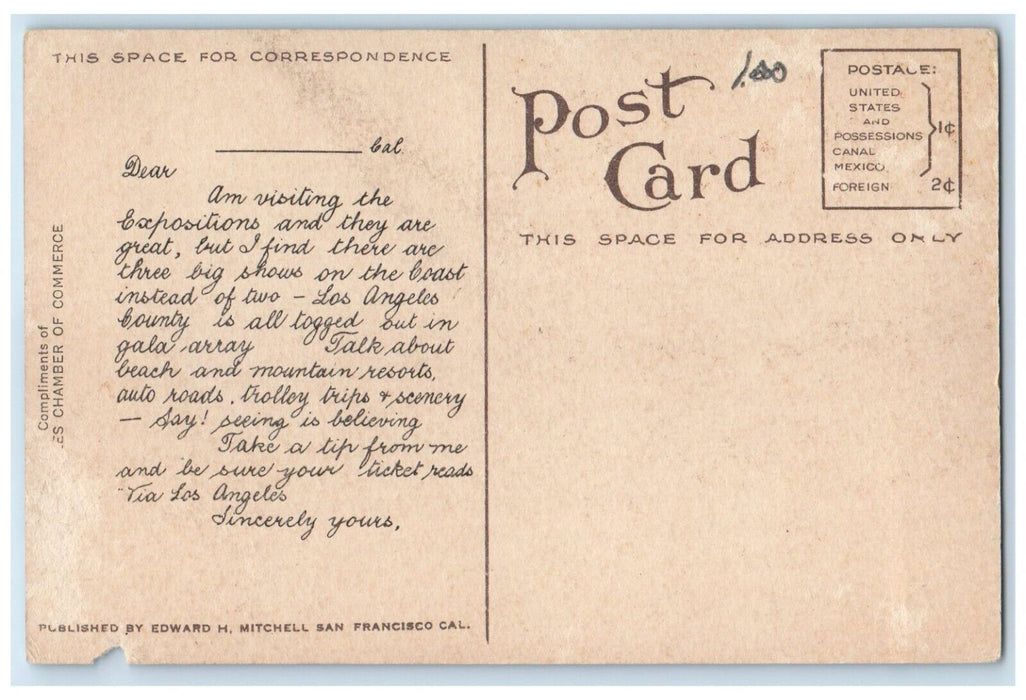 THIS SPACE FOR CORRESPONDENCE
Cal.
Dear
Am visiting the
Expositions and they are
great, but I find there are
three big shows on the Coast
instead of two – Los Angeles
County is all togged out in
gala array Talk about
beach and mountain resorts,
auto roads, trolley trips & scenery
— Say! seeing is believing
Take a tip from me
and be sure your ticket reads
"Via Los Angeles
Sincerely yours,
Compliments of
ES CHAMBER OF COMMERCE
PUBLISHED BY EDWARD H. MITCHELL SAN FRANCISCO CAL.
Post
Card
1.00
POSTAGE:
UNITED
STATES
AND
POSSESSIONS 1¢
CANAL
MEXICO
FOREIGN 2¢
THIS SPACE FOR ADDRESS ONLY